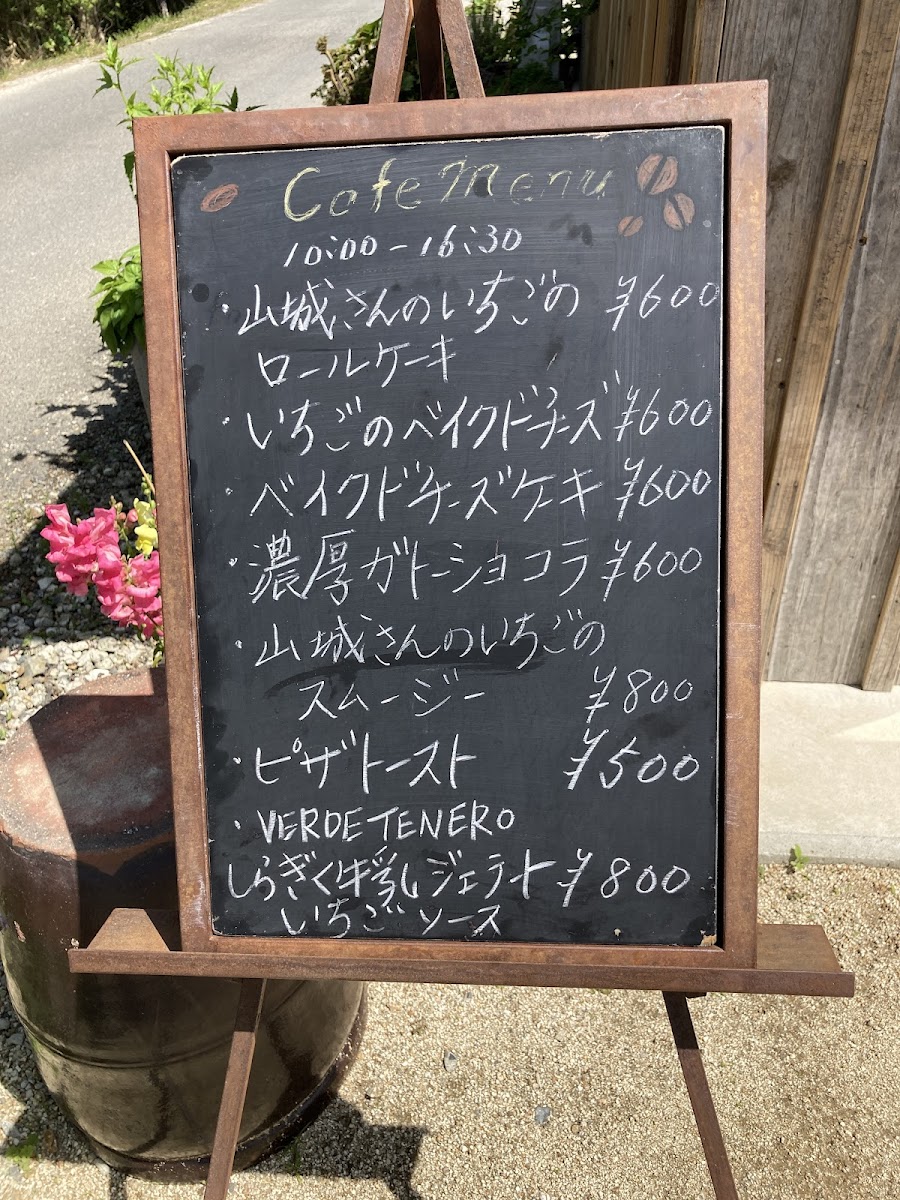 Cafe Menu
10:00-16:30
・山城さんのいちごの ¥600
ロールケーキ
・いちごのベイクドチーズ ¥600
・ベイクドチーズケーキ ¥600
・濃厚ガトーショコラ ¥600
・山城さんのいちごの
スムージー ¥800
・ピザトースト ¥500
・VERDE TENERO
しらぎく牛乳ジェラート ¥800
いちごソース